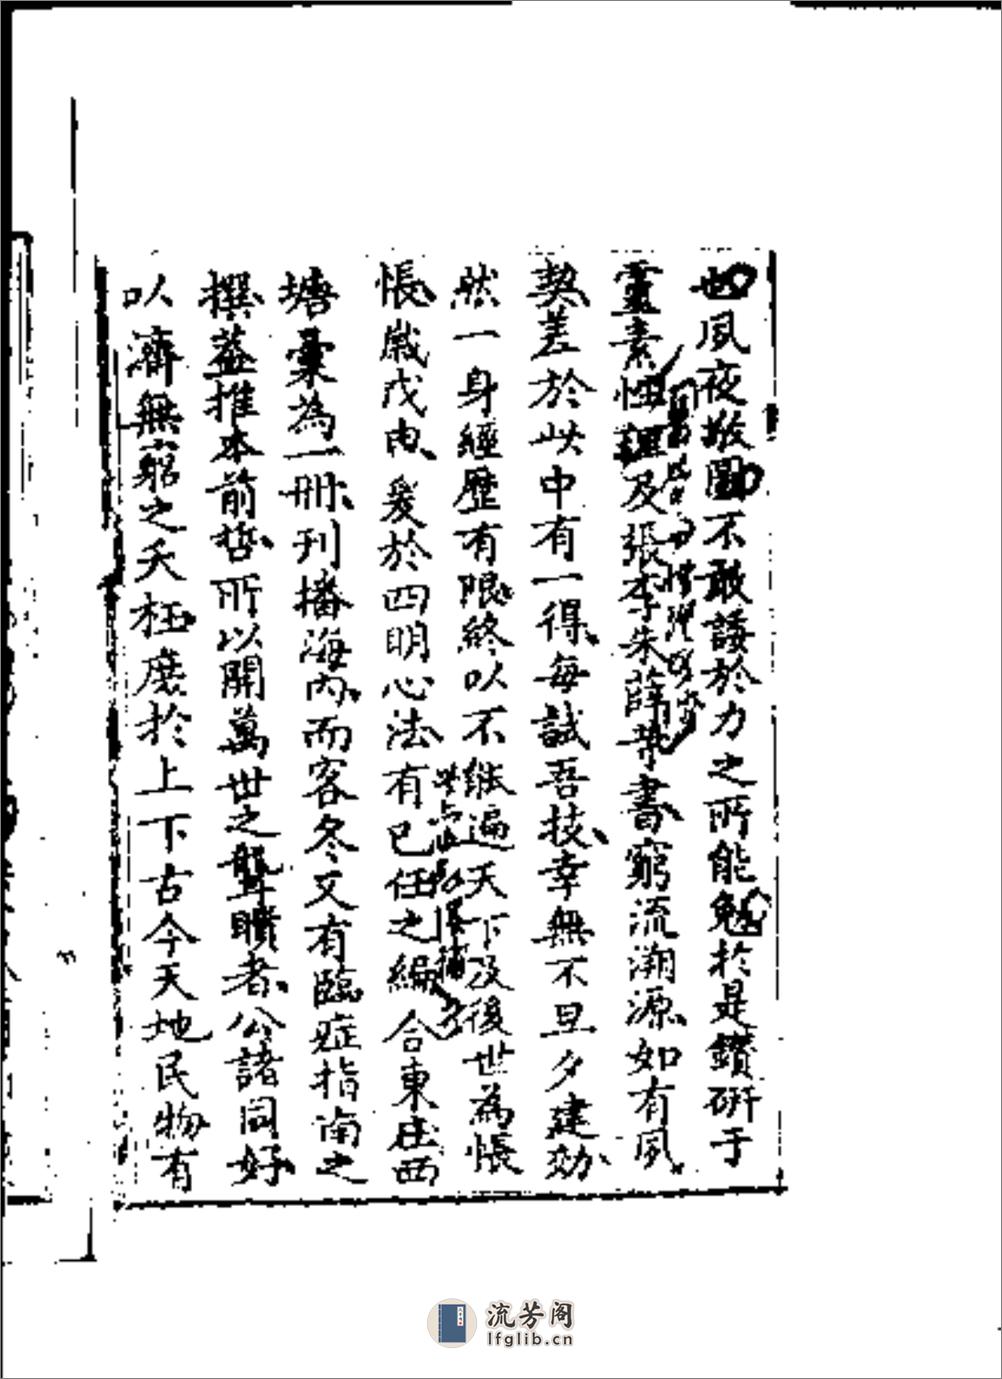 也夙夜敬圖不敢諉於力之所能勉於是鑽研于
靈素性理及張李朱薛等書窮流溯源如有夙
契差於此中有一得每試吾技幸無不旦夕建効
然一身經歷有限終以不継遍天下及後世為悵
悵歲戊申爰於四明心法有已任之編合東庄西
塘彙為一冊刊播海內而客冬又有臨症指南之
撰蓋推本前哲所以開萬世之聾聵者公諸同好
以濟無窮之夭枉庶於上下古今天地民物有
流芳阁
lfglib.cn